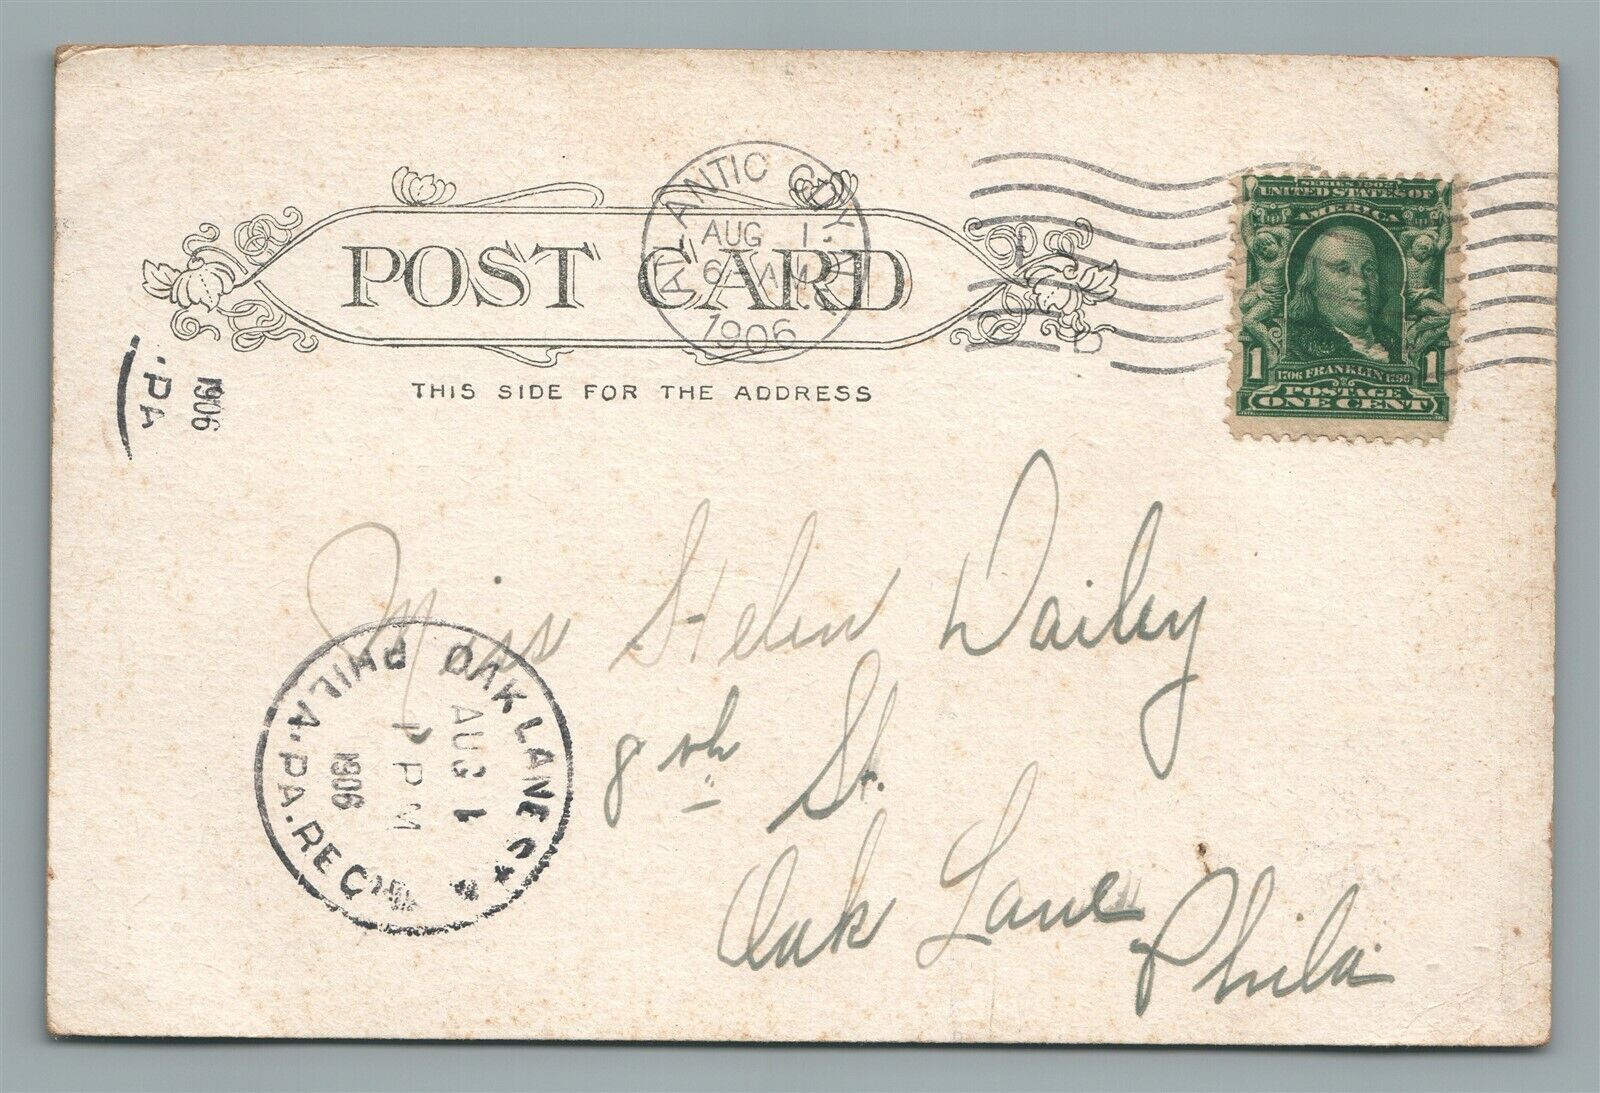 ATLANTIC CITY, N.J.
AUG 1
6 AM
1906
D
POST CARD
THIS SIDE FOR THE ADDRESS
SERIES 1902
UNITED STATES OF
AMERICA
1 1
1706 FRANKLIN 1790
POSTAGE
ONE CENT
1906
. PA
Miss Helen Dailey
8th St.
Oak Lane
Phila.
OAK LANE
PHILA. PA. REC'D
AUG 1
1 PM
1906